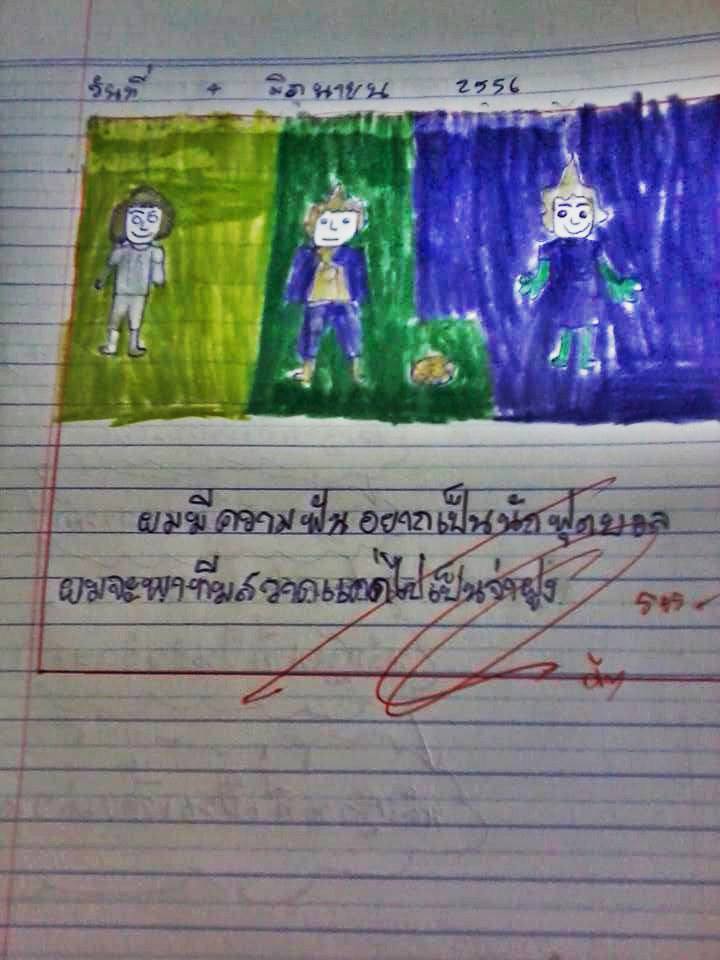 วันที่ 4 มิถุนายน 2556
ผมมีความฝันอยากเป็นนักฟุตบอล
ผมจะพาทีมสวาดแคต่ไปเป็นจ่าฝูง